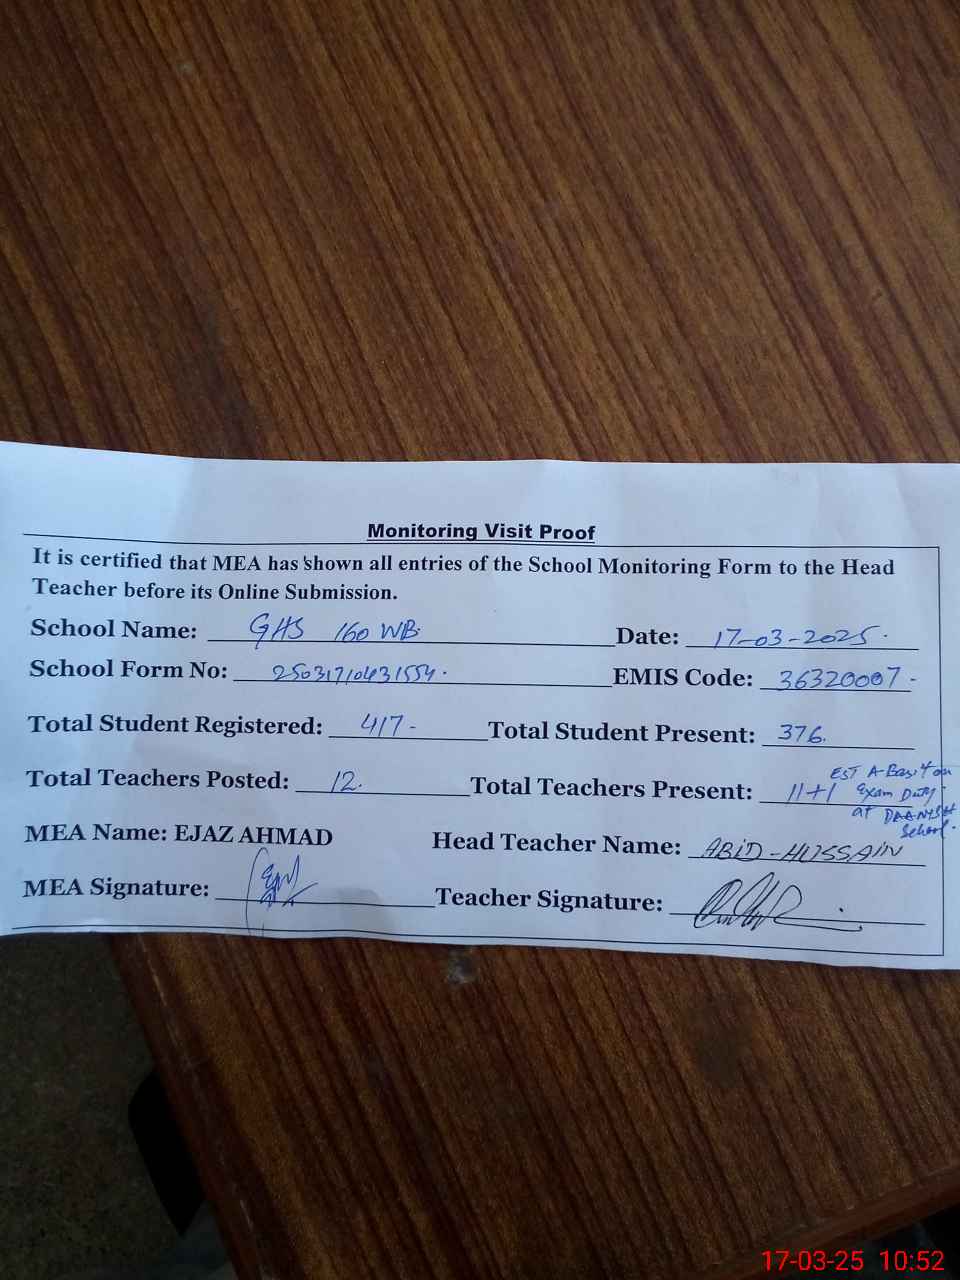 Monitoring Visit Proof
It is certified that MEA has shown all entries of the School Monitoring Form to the Head
Teacher before its Online Submission.
School Name: GHS 160 WB. Date: 17-03-2025.
School Form No: 25031710431554. EMIS Code: 36320007-
Total Student Registered: 417- Total Student Present: 376.
EST A. Basit on
Total Teachers Posted: 12. Total Teachers Present: 11+1 Exam Duty
at DAANISH
School.
MEA Name: EJAZ AHMAD Head Teacher Name: ABID-HUSSAIN
MEA Signature: Teacher Signature:
17-03-25 10:52